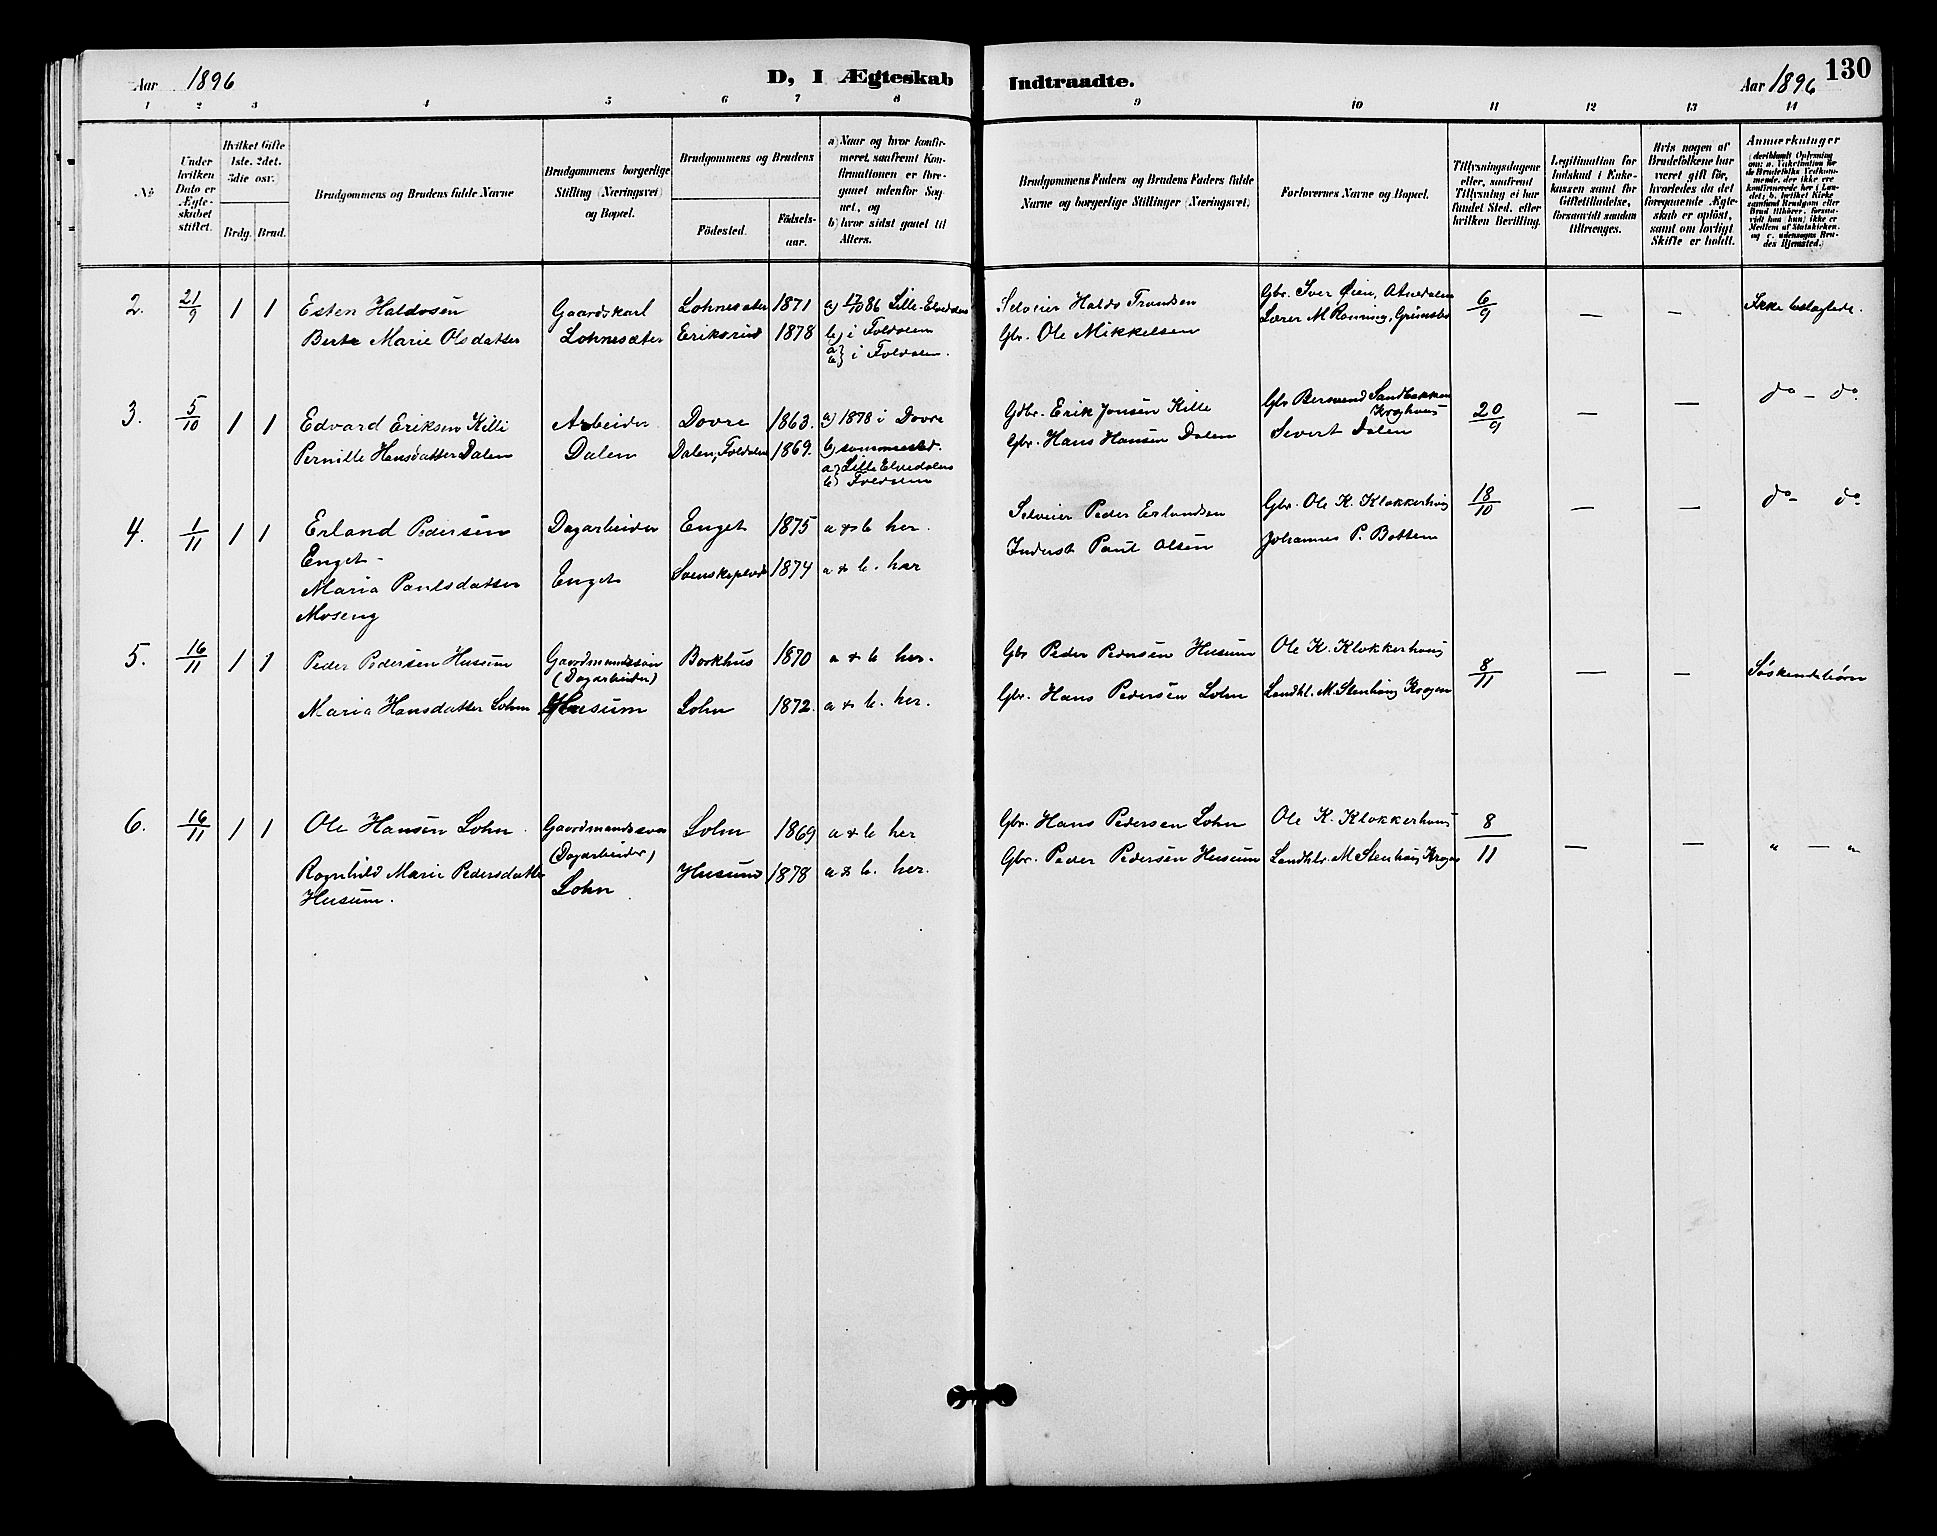 Aar 1896
D, I Ægteskab
Indtraadte.
Aar 1896
130
1 2 3 4 5 6 7 8 9 10 11 12 13 14
No
Under hvilken Dato er Ægteskabet stiftet.
Hvilket Gifte 1ste. 2det. 3die osv.
Brdg. Brud.
Brudgommens og Brudens fulde Navne
Brudgommens borgerlige Stilling (Næringsvei) og Bopæl.
Brudgommens og Brudens
Födested.
Födselsaar.
a) Naar og hvor konfirmeret, saafremt Konfirmationen er foregaaet udenfor Sognet, og
b) hvor sidst gaaet til Alters.
Brudgommens Faders og Brudens Faders fulde Navne og borgerlige Stillinger (Næringsvei)
Forlovernes Navne og Bopæl.
Tillysningsdagene eller, saafremt Tillysning ei har fundet Sted, efter hvilken Bevilling.
Legitimation for Indskud i Enkekassen samt for Giftetilladelse, forsaavidt saadan tiltrænges.
Hvis nogen af Brudefolkene har været gift för, hvorledes da det foregaaende Ægteskab er oplöst, samt om lovligt Skifte er holdt.
Anmærkninger
2. 21/9 1 1 Esten Haldosen Gaardskarl Lohnesæter 1871 a) 17/10 86 Lille-Elvedalen
Berte Marie Olsdatter Lohnesæter Eriksrud 1878 b) i Foldalen
a) b) i Foldalen.
Selveier Haldo Trondsen Gbr. Iver Øien, Atnedalen 6/9 — — Ikke beslægtede.
Gbr. Ole Mikkelsen Lærer M Rønning, Grimsbo
3. 5/10 1 1 Edvard Eriksen Killi Arbeider Dovre 1863. a) 1878 i Dovre
Pernille Hansdatter Dalen Dalen Dalen, Foldalen 1869. b) sammested.
a) Lille Elvedalen
b) Foldalen
Gdbr. Erik Jonsen Kille Gbr Bersvend Sandbakken 20/9 — — do – do
Krokhaug
Gbr. Hans Hansen Dalen Sivert Dalen
4. 1/11 1 1 Erland Pedersen Dagarbeider Enget 1875 a & b her.
Enget
Maria Paulsdatter Enget 1874 a & b. her
Moseng
Selveier Peder Erlandsen Gbr. Ole K. Klokkerhaug 18/10 — — do do
Inderst Paul Olsen Johannes P. Botten
5. 16/11 1 1 Peder Pedersen Husum Gaardmandssøn Borkhus 1870 a & b her.
(Dagarbeider)
Maria Hansdatter Lohn Husum Lohn 1872. a & b. her.
Gbr Peder Pedersen Husum Ole K. Klokkerhaug 8/11 — — Søskendebørn
Gbr. Hans Pedersen Lohn Landhl. M. Stenhaug Krogen
6. 16/11 1 1 Ole Hansen Lohn. Gaardmandssøn Lohn 1869 a & b her
(Dagarbeider)
Ragnhild Marie Pedersdatter Lohn Husum 1878 a & b. her.
Husum.
Gbr. Hans Pedersen Lohn Ole K. Klokkerhaug 8/11 — — " — "
Gbr. Peder Pedersen Husum Landhlr. M Stenhaug Krogen